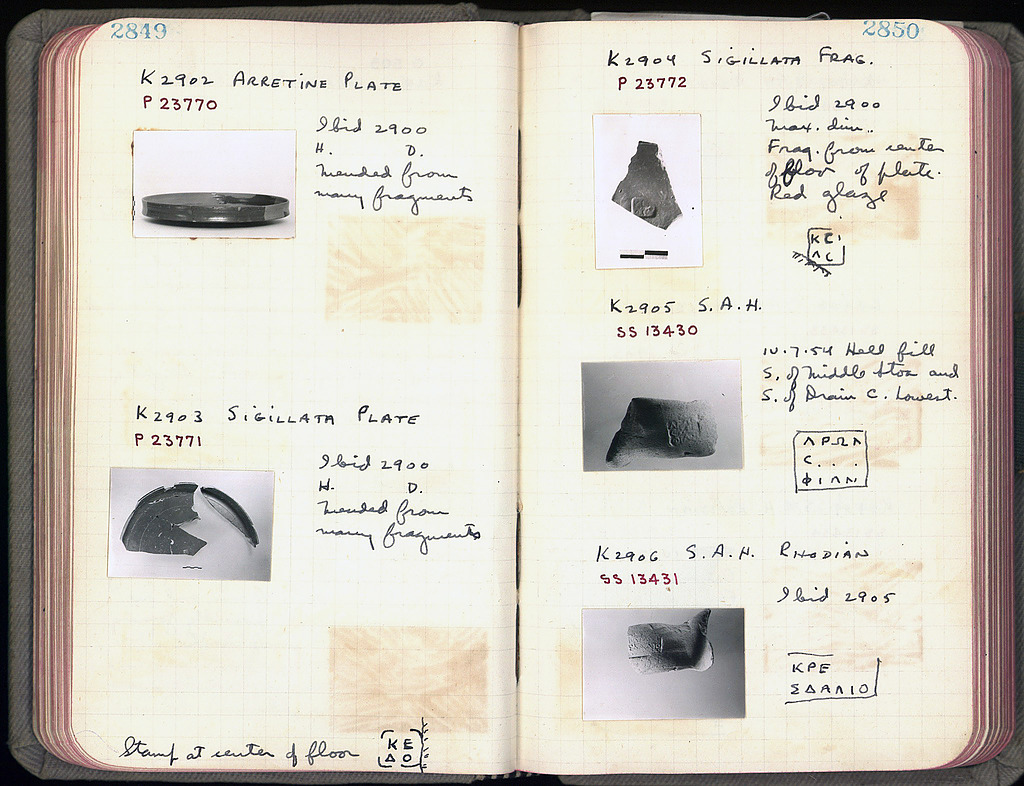 2849
K2902 ARRETINE PLATE
P 23770
Ibid 2900
H. D.
Mended from
many fragments
K2903 SIGILLATA PLATE
P 23771
Ibid 2900
H. D.
Mended from
many fragments
Stamp at center of floor
ΚΕ
ΔΟ
2850
K2904 SIGILLATA FRAG.
P 23772
Ibid 2900
Max. dim..
Frag. from center
of floor of plate.
Red glaze
ΚΕΙ
ΛC
K2905 S.A.H.
SS 13430
IV.7.54 Hell fill
S. of Middle Stoa and
S. of Drain C. Lowest.
ΛΡΩΛ
C...
ΦΙΛΛ
K2906 S.A.H. RHODIAN
SS 13431
Ibid 2905
ΚΡΕ
ΣΔΑΛΙΟ